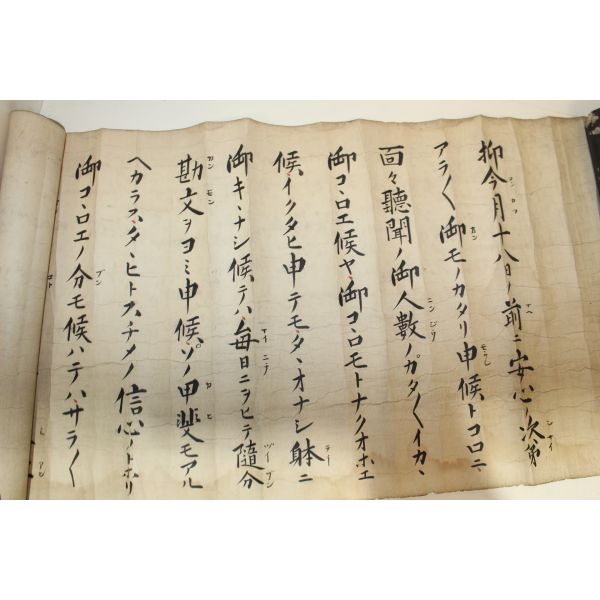 抑今月十八日ノ前ニ安心ノ次第
アラ〳〵御モノカタリ申候トコロニ、
面々聽聞ノ御人數ノカタ〳〵イカヽ
御コヽロエ候ヤ御コヽロモトナクオホエ
候、イクタヒ申テモタヽオナシ躰ニ
御キヽナシ候テハ毎日ニヲヒテ隨分
勘文ヲヨミ申候ソノ甲斐モアル
ヘカラス、タヽヒトスチメノ信心ノトホリ
御コヽロエノ分モ候ハテハ、サラ〳〵